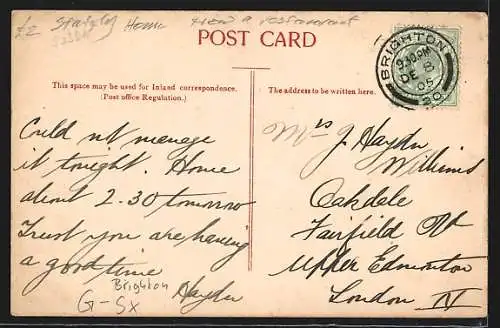 £2 Stately Home
POST CARD
BRIGHTON
9.30PM
DE 8
05
20
This space may be used for Inland correspondence.
(Post office Regulation.)
The address to be written here.
Could not manage
it tonight. Home
about 2.30 tomorrow
Trust you are having
a good time
Haydn
Brighton
G-SX
Mrs J. Haydn
Williams
Oakdale
Fairfield Rd
Upper Edmonton
London N